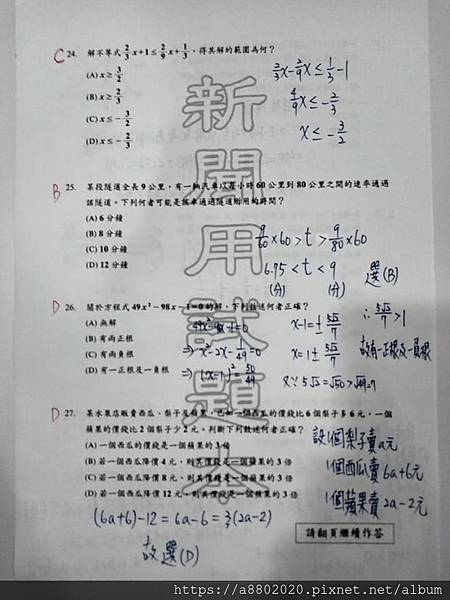 C 24. 解不等式 2/3 x+1≤2/9 x+1/3，得其解的範圍為何？
(A) x≥3/2
(B) x≥2/3
(C) x≤-3/2
(D) x≤-2/3
2/3x-2/9x≤1/3-1
4/9x≤-2/3
x≤-3/2
B 25. 某段隧道全長 9 公里，有一輛汽車以每小時 60 公里到 80 公里之間的速率通過
該隧道。下列何者可能是該車通過隧道所用的時間？
(A) 6 分鐘
(B) 8 分鐘
(C) 10 分鐘
(D) 12 分鐘
9/60×60>t>9/80×60
6.75<t<9
(分) (分)
選(B)
D 26. 關於方程式 49x²-98x-1=0 的解，下列敘述何者正確？
(A) 無解
(B) 有兩正根
(C) 有兩負根
(D) 有一正根及一負根
49x²-98x-1=0
⇒x²-2x-1/49=0
⇒(x-1)²=50/49
x-1=±5√2/7
x=1±5√2/7
又∵5√2=√50>√49=7
∴5√2/7>1
故有一正根及一負根
D 27. 某水果店販賣西瓜、梨子及蘋果，已知一個西瓜的價錢比 6 個梨子多 6 元，一個
蘋果的價錢比 2 個梨子少 2 元。判斷下列敘述何者正確？
(A) 一個西瓜的價錢是一個蘋果的 3 倍
(B) 若一個西瓜降價 4 元，則其價錢是一個蘋果的 3 倍
(C) 若一個西瓜降價 8 元，則其價錢是一個蘋果的 3 倍
(D) 若一個西瓜降價 12 元，則其價錢是一個蘋果的 3 倍
設1個梨子賣a元
1個西瓜賣6a+6元
1個蘋果賣2a-2元
(6a+6)-12=6a-6=3(2a-2)
故選(D)
請翻頁繼續作答
新聞用試題本
https://a8802020.pixnet.net/album